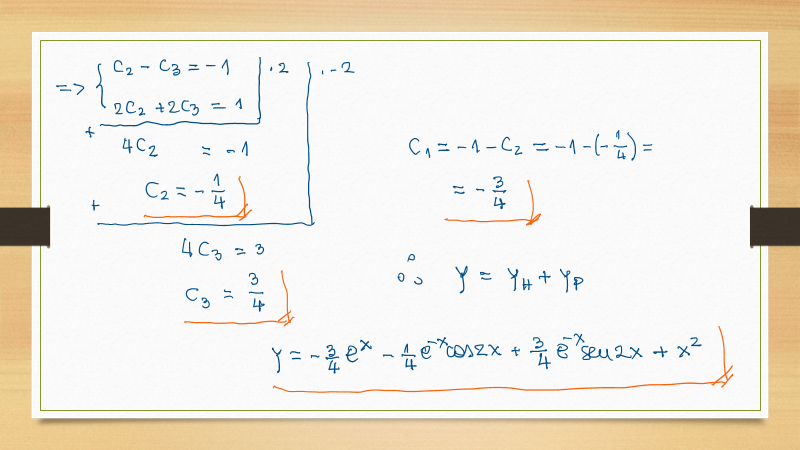 => { C₂ - C₃ = -1 | ·2 | ·-2
2C₂ + 2C₃ = 1
+
4C₂ = -1
C₂ = -1/4
+
4C₃ = 3
C₃ = 3/4
C₁ = -1 - C₂ = -1 - (-1/4) =
= -3/4
∴ y = y_H + y_P
y = -3/4 e^x - 1/4 e^-x cos2x + 3/4 e^-x sen2x + x²